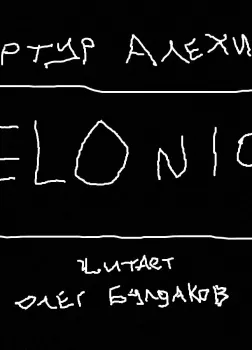 РТУР АЛЕХИ
ELONIC
Читает
ОЛЕГ БУЛДАКОВ